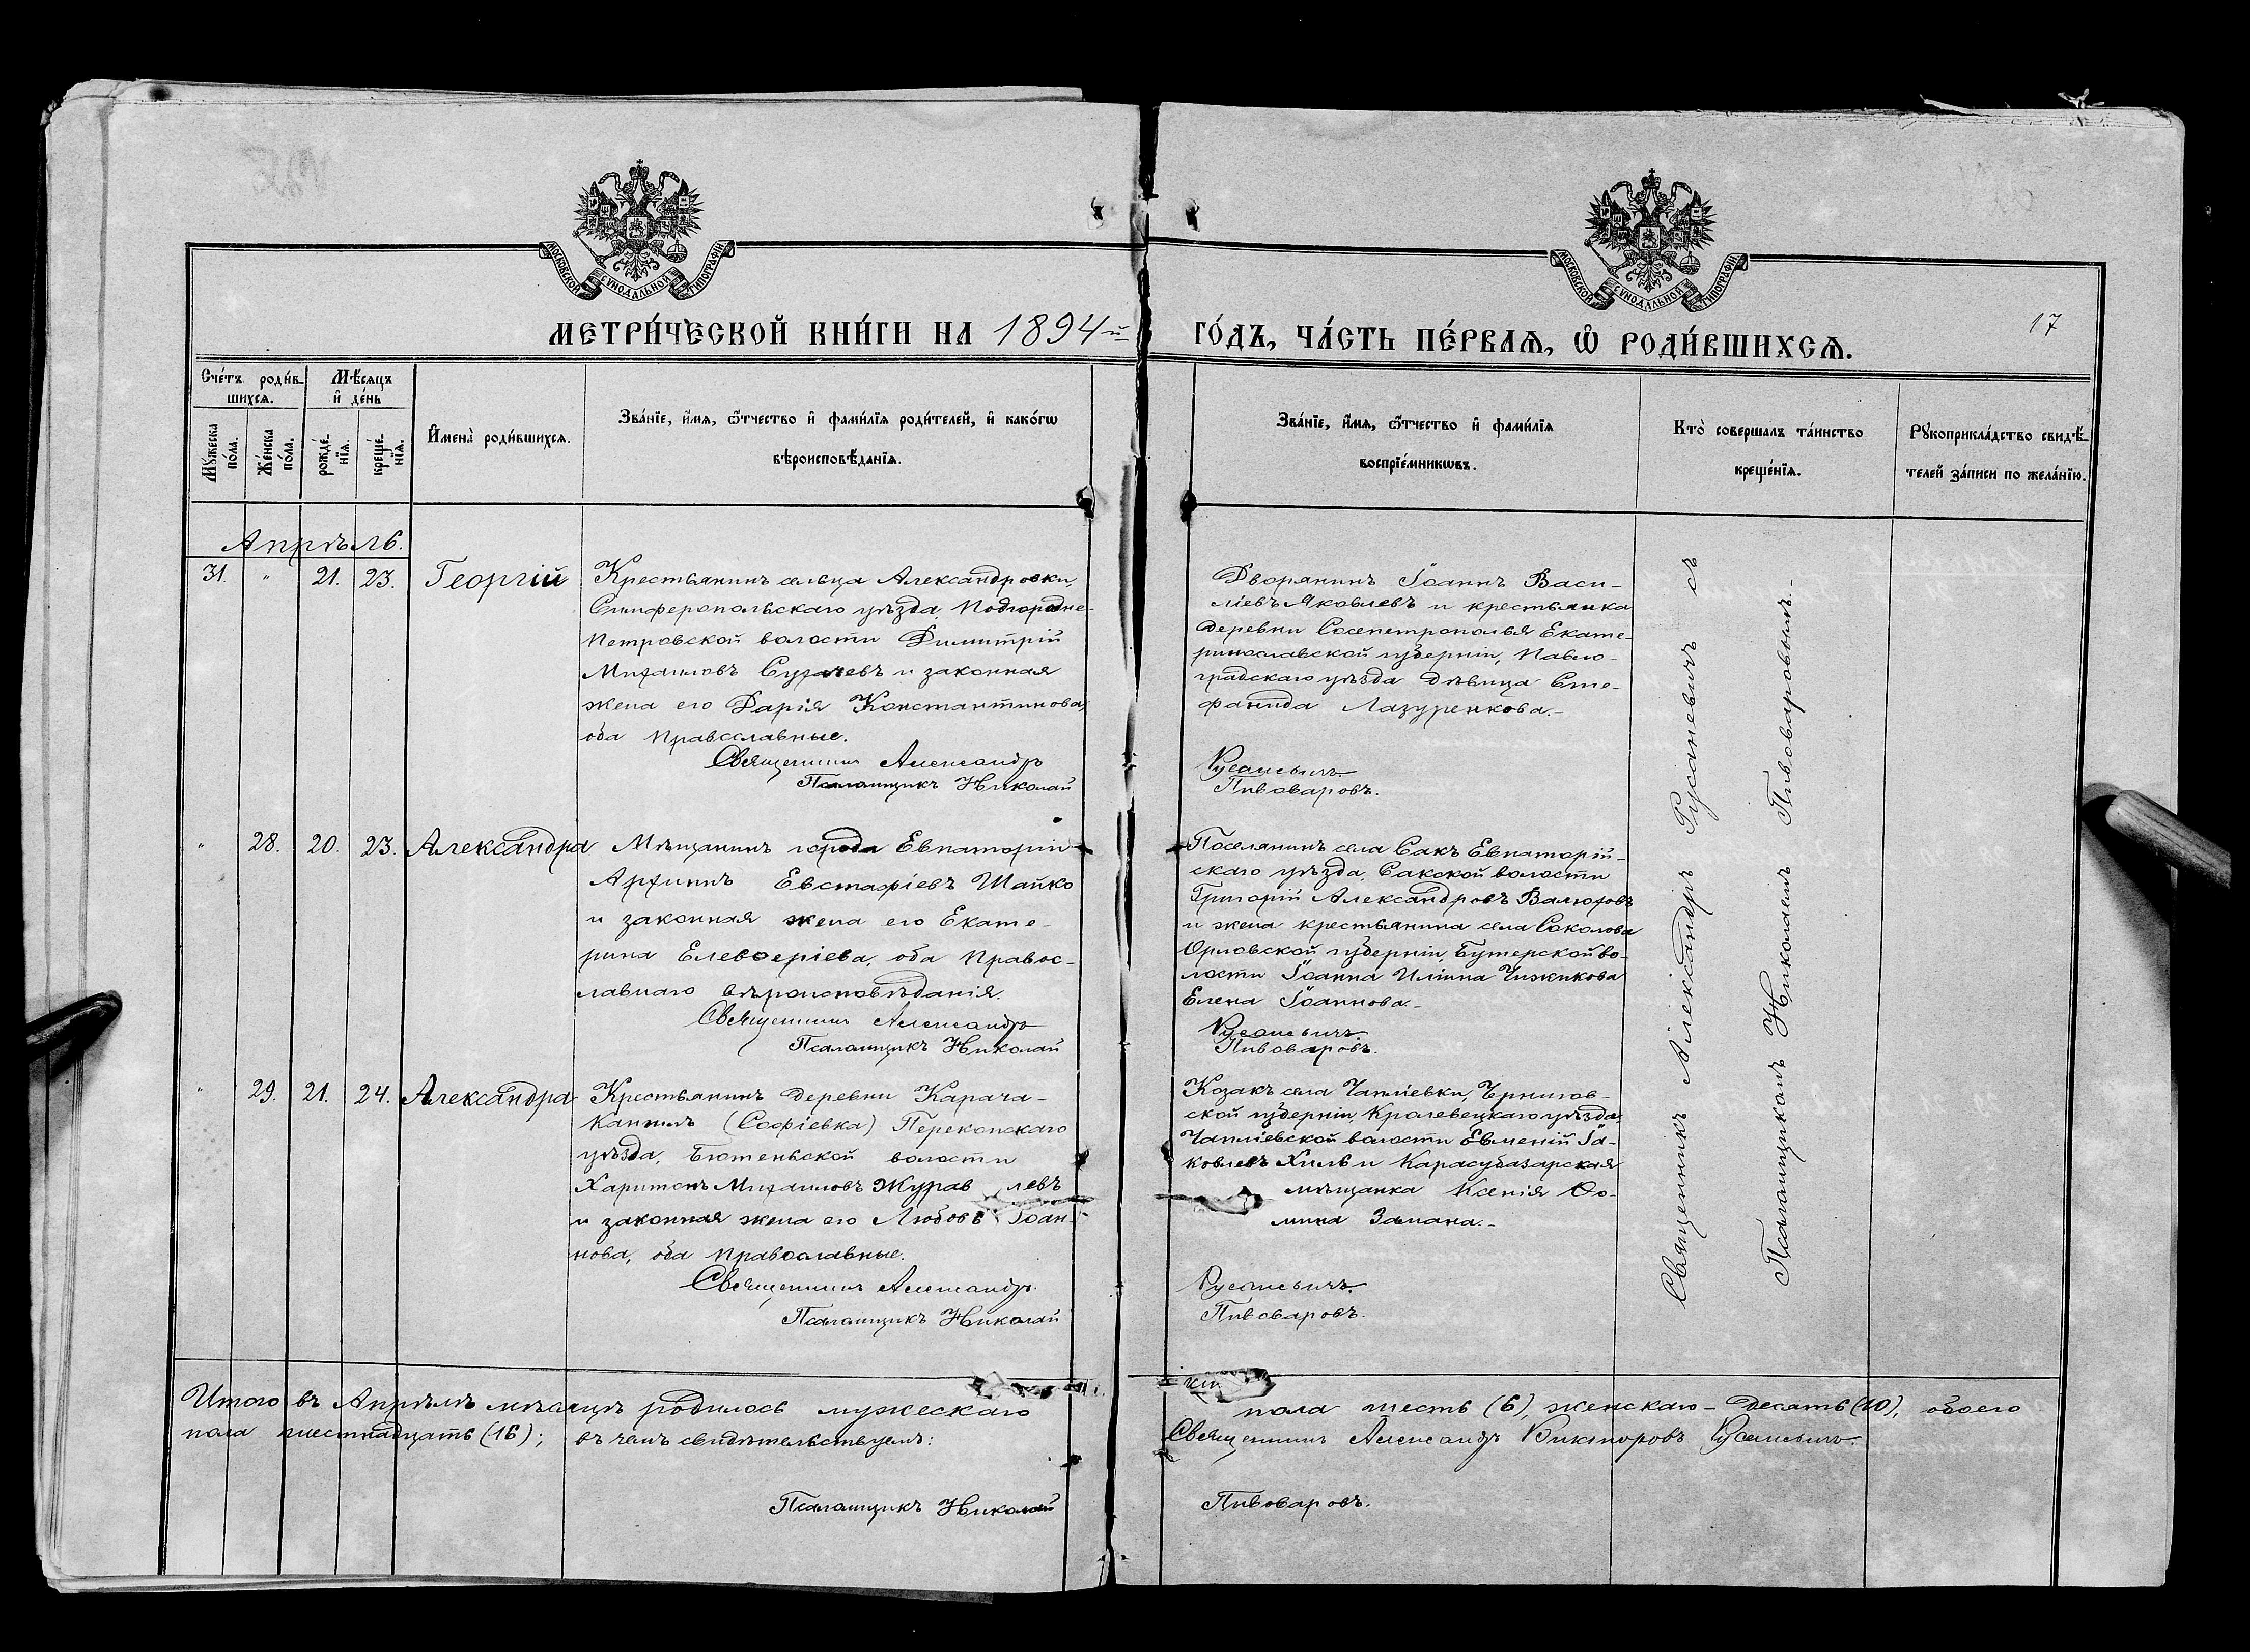 МОСКОВСКОЙ СѴНОДАЛЬНОЙ ТИПОГРАФІИ
МОСКОВСКОЙ СѴНОДАЛЬНОЙ ТИПОГРАФІИ
МЕТРИ́ЧЕСКОЙ КНИ́ГИ НА 1894-й
ГО́ДЪ, ЧА́СТЬ ПЕ́РВАѦ, Ѽ РОДИ́ВШИХСѦ.
17
Сче́тъ роди́в-
шихсѧ.
Мѣ́сѧцъ
и҆ де́нь
Мꙋ́жеска
по́ла.
Же́нска
по́ла.
рожде́-
нїѧ.
креще́-
нїѧ.
И҆мена̀ роди́вшихсѧ.
Зва́нїе, и҆́мѧ, ѻ҆́тчество и҆ фами́лїѧ роди́телей, и҆ како́гѡ
вѣроисповѣ́данїѧ.
Зва́нїе, и҆́мѧ, ѻ҆́тчество и҆ фами́лїѧ
воспрїе́мникѡвъ.
Кто̀ соверша́лъ та́инство
креще́нїѧ.
Рꙋкоприкла́дство свидѣ́-
телей за́писи по жела́нїю.
Апрѣль.
31. " 21. 23. Георгій
Крестьянинъ сельца Александровки,
Симферопольскаго уѣзда, Подгородне-
Петровской волости Димитрій
Михаиловъ Сухачевъ и законная
жена его Дарія Константинова,
оба православные.
Священникъ Александръ
Псаломщикъ Николай
Дворянинъ Іоаннъ Васи-
ліевъ Яковлевъ и крестьянка
деревни Екате-
ринославской губерніи, Павло-
градскаго уѣзда дѣвица Сте-
фанида Лазуренкова.-
Русаневичъ.
Пивоваровъ.
" 28. 20. 23. Александра
Мѣщанинъ города Евпаторіи
Евстафіевъ Шайко
и законная жена его Екате-
рина Елевѳеріева, оба правос-
лавнаго вѣроисповѣданія.
Священникъ Александръ
Псаломщикъ Николай
Поселянинъ села Сакъ Евпаторій-
скаго уѣзда, Сакской волости
Григорій Александровъ Валюховъ
и жена крестьянина села Соколова
Орловской губерніи, Бутерской во-
лости Іоанна Иліина Чижикова
Елена Іоаннова.-
Русаневичъ.
Пивоваровъ.
" 29. 21. 24. Александра
Крестьянинъ деревни Карача-
Кангилъ (Софіевка) Перекопскаго
уѣзда, Бютеньской волости
Харитонъ Михаиловъ Журавлевъ
и законная жена его Любовь Іоан-
нова, оба православные.
Священникъ Александръ
Псаломщикъ Николай
Козакъ села Чапліевки, Чернигов-
ской губерніи, Кролевецкаго уѣзда,
Чапліевской волости Евменій Іа-
ковлевъ Хиль и Карасубазарская
мѣщанка Ксенія Ѳо-
мина Запана.-
Русаневичъ.
Пивоваровъ.
Священникъ Александръ Русаневичъ съ
Псаломщикомъ Николаемъ Пивоваровымъ.-
Итого въ Апрѣлѣ мѣсяцѣ родилось мужескаго пола шесть (6), женскаго - десять (10), обоего
пола шестнадцать (16); въ чемъ свидѣтельствуемъ: Священникъ Александръ Викторовъ Русаневичъ.
Псаломщикъ Николай Пивоваровъ.